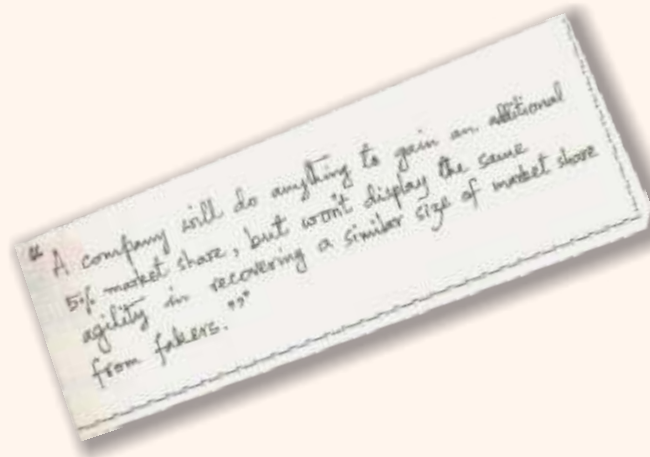 " A company will do anything to gain an additional
5% market share, but won't display the same
agility in recovering a similar size of market share
from fakers."